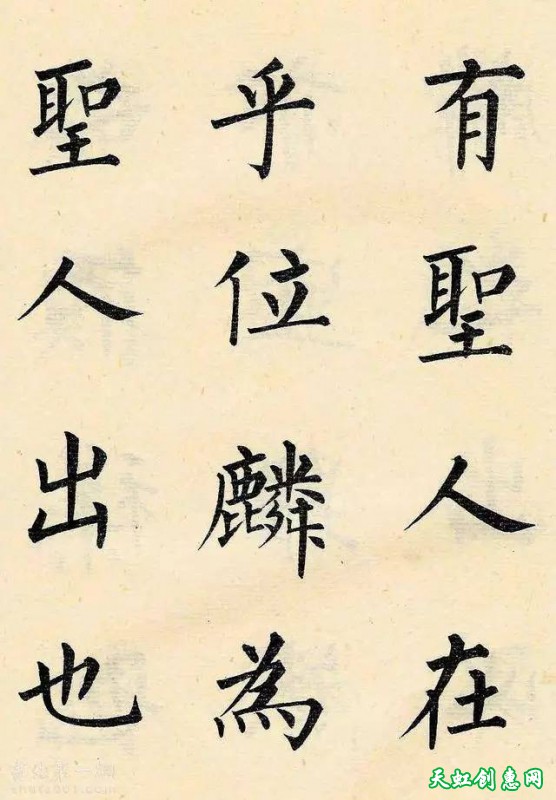 有聖人在
乎位麟為
聖人出也
天虹创惠网